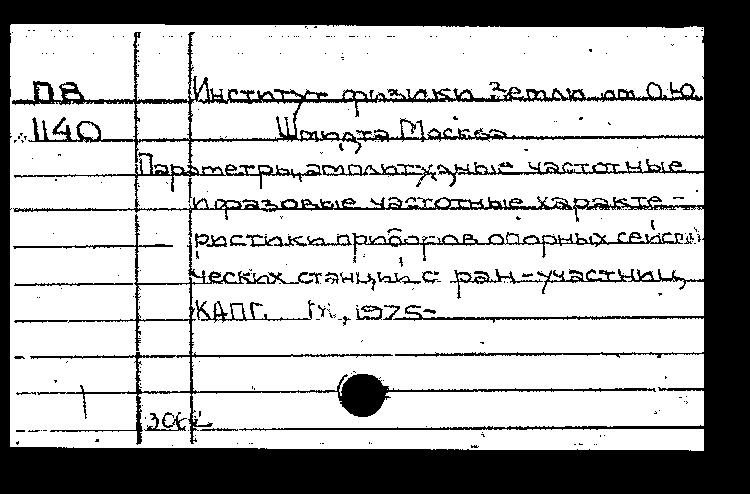 ПВ Институт физики Земли им О.Ю.
1140 Шмидта Москва
Параметры, амплитудные частотные
и фазовые частотные характе-
ристики приборов опорных сейсми
ческих станций с ран-участниц
КАПГ. М, 1975-